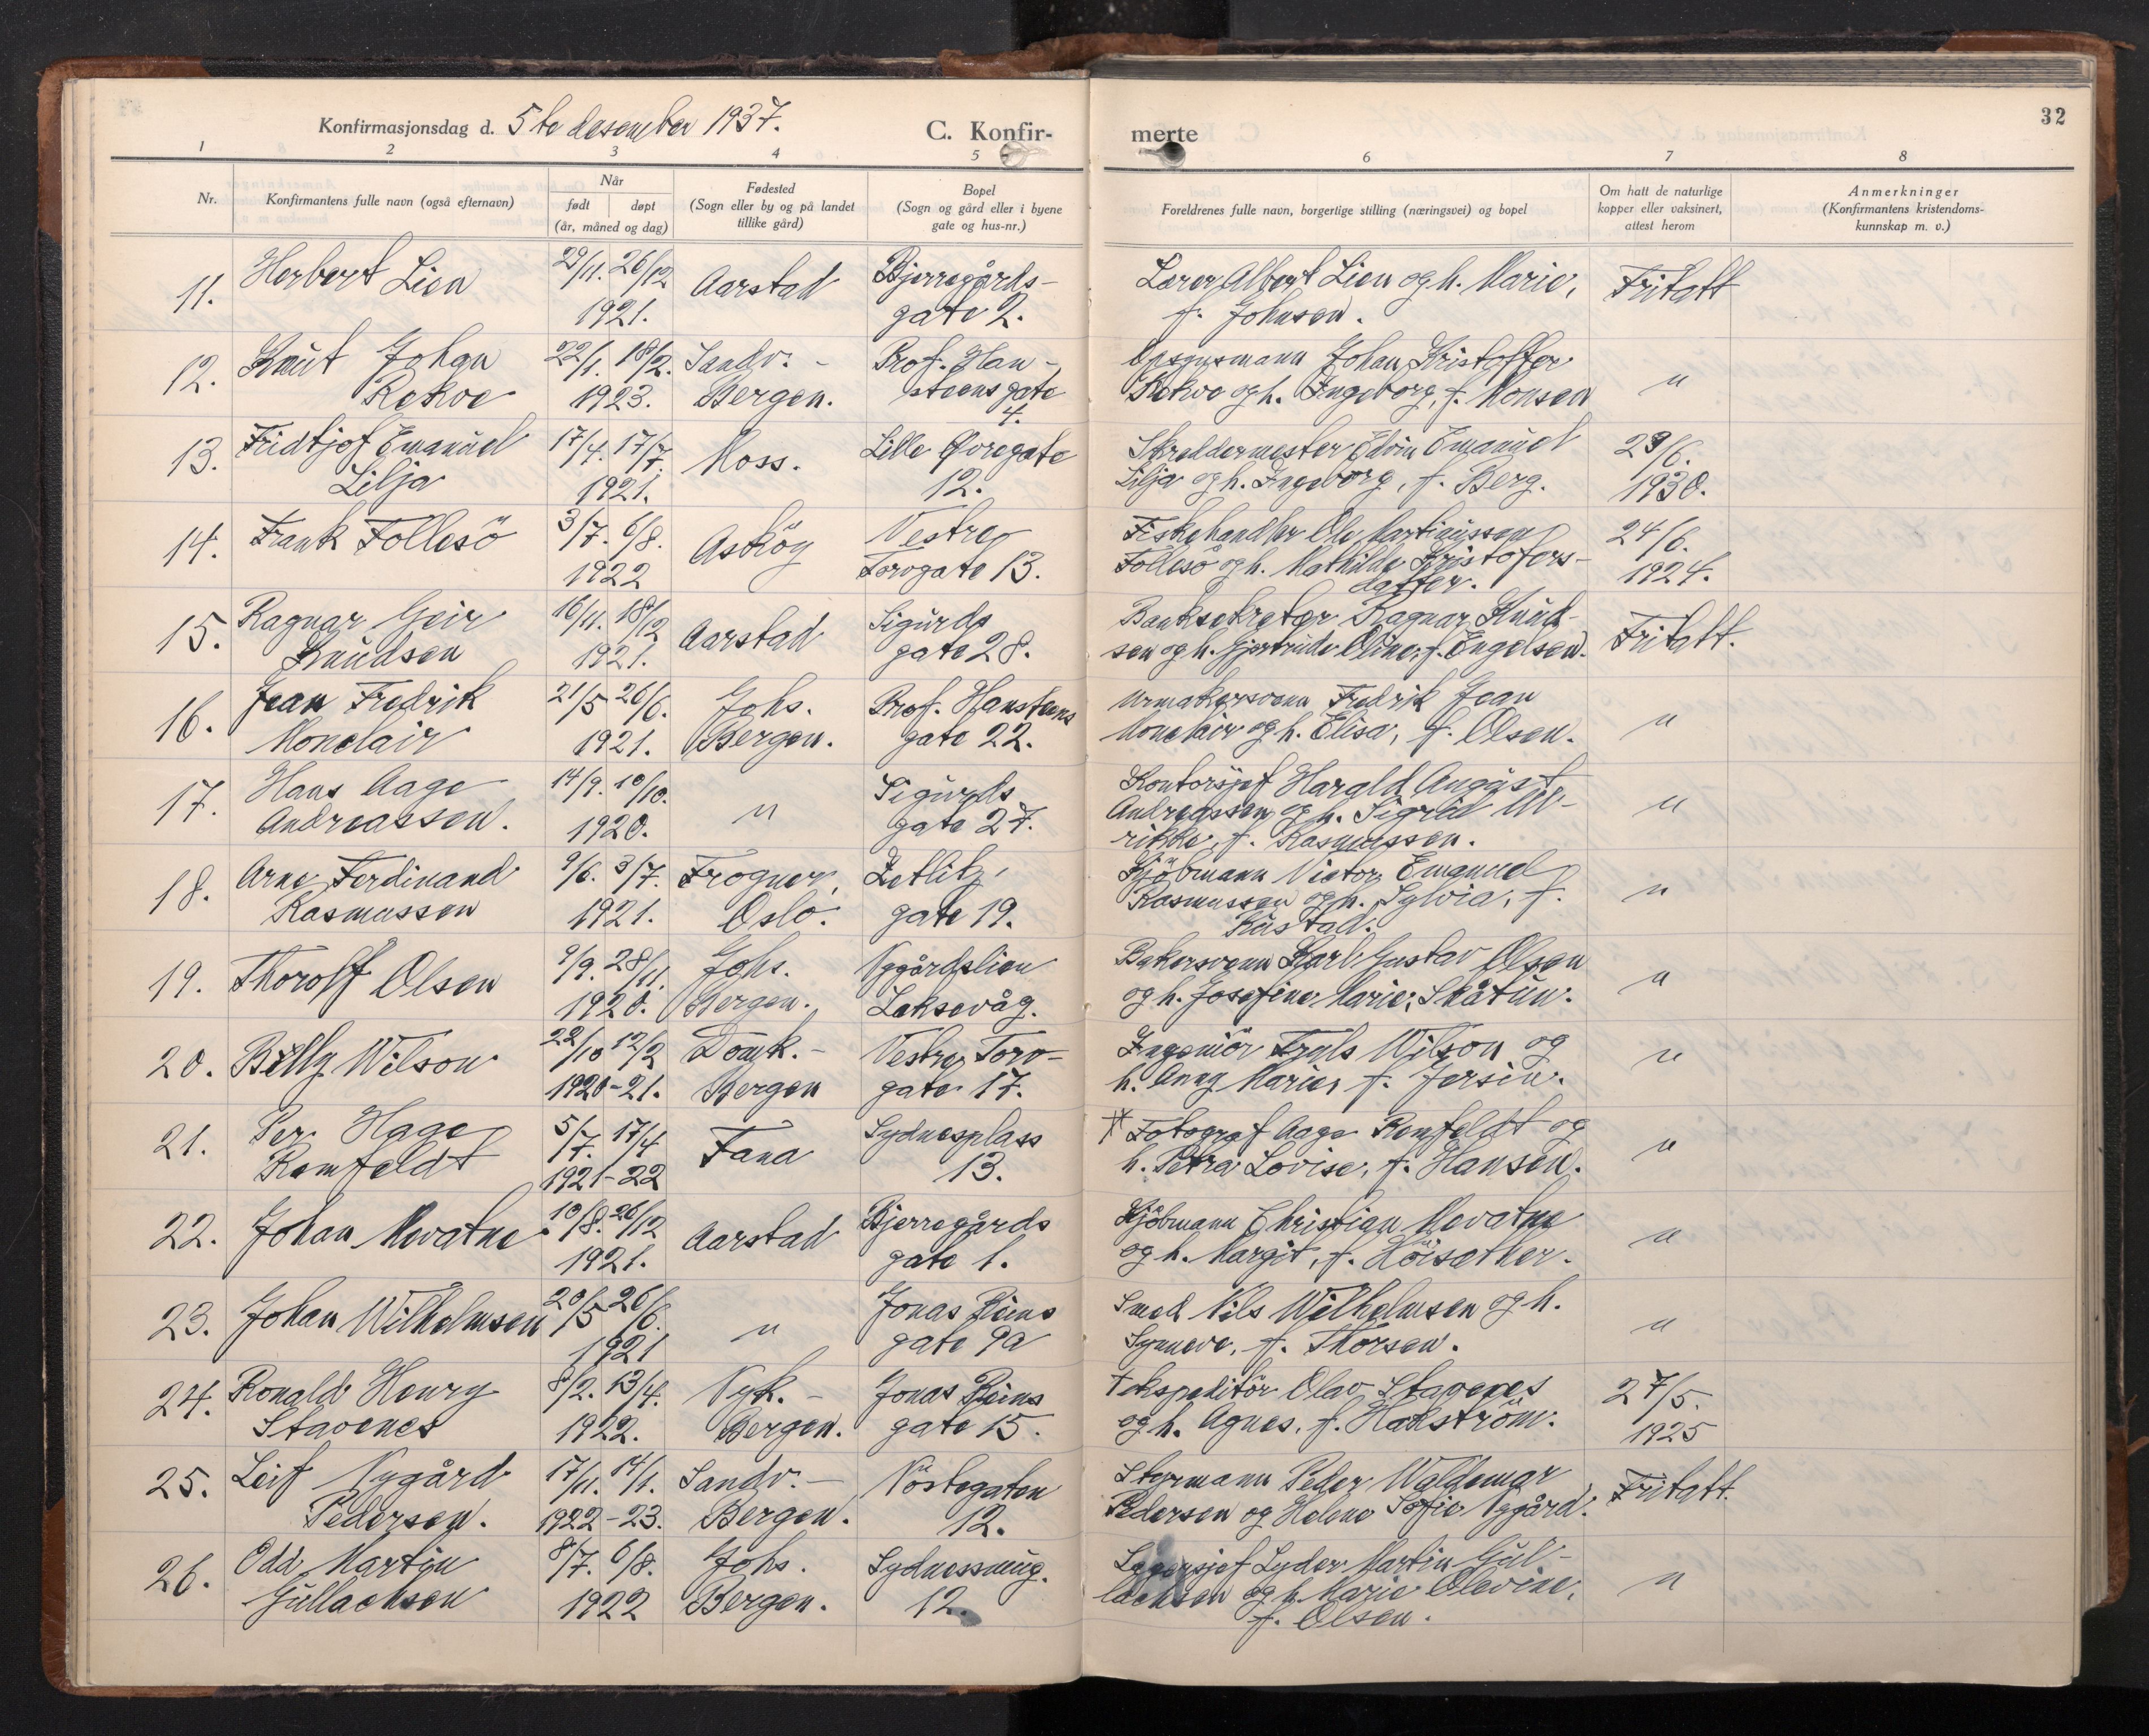 32
Konfirmasjonsdag d. 5te desember 1937.
C. Konfir-
merte
1 2 3 4 5 6 7 8
Nr.
Konfirmantens fulle navn (også efternavn)
Når
født døpt
(år, måned og dag)
Fødested
(Sogn eller by og på landet
tillike gård)
Bopel
(Sogn og gård eller i byene
gate og hus-nr.)
Foreldrenes fulle navn, borgerlige stilling (næringsvei) og bopel
Om hatt de naturlige
kopper eller vaksinert,
attest herom
Anmerkninger
(Konfirmantens kristendoms-
kunnskap m. v.)
11. Herbert Lien 29/11. 26/12 Aarstad Bjerregårds- Lærer Albert Lien og h. Marie, Fritatt
1921. gate 2. f. Johnsen.
12. Knut Johan 22/1. 18/2. Sandv. - Prof. Han- Opsynsmann Johan Kristoffer "
Rekve 1923. Bergen. steens gate Rekve og h. Ingeborg, f. Monsen
4.
13. Fridtjof Emanuel 17/4. 17/7. Moss. Lille Øvregate Skreddermester Edvin Emanuel 29/6.
Lilja 1921. 12. Lilja og h. Ingeborg, f. Berg. 1930.
14. Frank Follesö 3/7. 6/8. Asköy Vestre Fiskehandler Ole Martinussen 24/6.
1922 Torvgate 13. Follesö og h. Mathilde Kristofers- 1924.
datter.
15. Ragnar Geir 16/11. 18/12 Aarstad Sigurds Banksekretær Ragnar Knud- Fritatt.
Knudsen 1921. gate 28. sen og h. Gjertrude Oline, f. Engelsen.
16. Jean Fredrik 21/5 26/6. Johs. Prof. Hansteens Urmakersvenn Fredrik Jean "
Monclair 1921. Bergen. gate 22. Monclair og h. Elisa, f. Olsen.
17. Hans Aage 14/9. 10/10. " Sigurds Kontorsjef Harald August "
Andreassen. 1920. gate 27. Andreassen og h. Sigrid Ul-
rikke, f. Rasmussen.
18. Arne Ferdinand 9/6. 3/7. Frogner, Zetlitz, Kjöbmann Victor Emanuel "
Rasmussen 1921. Oslo. gate 19. Rasmussen og h. Sylvia, f.
Rustad.
19. Thorolf Olsen 9/9. 28/11. Johs. Nygårdslien Bakersvenn Karl Gustav Olsen "
1920. Bergen. Laksevåg. og h. Josefine Marie, Skåtun.
20. Billy Wilson 22/10 12/2 Domk. - Vestre Torv- Ingeniör Wilson og "
1920-21. Bergen gate 17. h. Anny Marie, f. Jersin.
21. Per Hage 5/7. 17/4 Fana Sydnesplass Fotograf Aage Remfeldt og "
Remfeldt 1921-22 13. h. Petra Lovise, f. Hansen.
22. Johan Mevatne 10/8. 26/12 Aarstad Bjerregårds Kjöbmann Christian Mevatne "
1921. gate 1. og h. Margit, f. Höisæther.
23. Johan Wilhelmsen 20/5 26/6. " Jonas Reins Smed Nils Wilhelmsen og h. "
1921 gate 9a Synneve, f. Thorsen.
24. Ronald Henry 8/2. 13/4. Nyk. - Jonas Reins Ekspeditör Olav Stavenes 27/5.
Stavenes 1922. Bergen. gate 15. og h. Agnes, f. Hakström. 1925
25. Leif Nygård 17/11. 14/1. Sandv. - Nöstegaten Styrmann Peder Waldemar Fritatt.
Pedersen. 1922-23. Bergen. 12. Pedersen og Helene Sofie Nygård.
26. Odd Martin 8/7. 6/8. Johs. Sydnessmug. Lagersjef Lyder Martin Gul- "
Gullachsen 1922 Bergen. 12. lachsen og h. Marie Olevine,
f. Olsen.